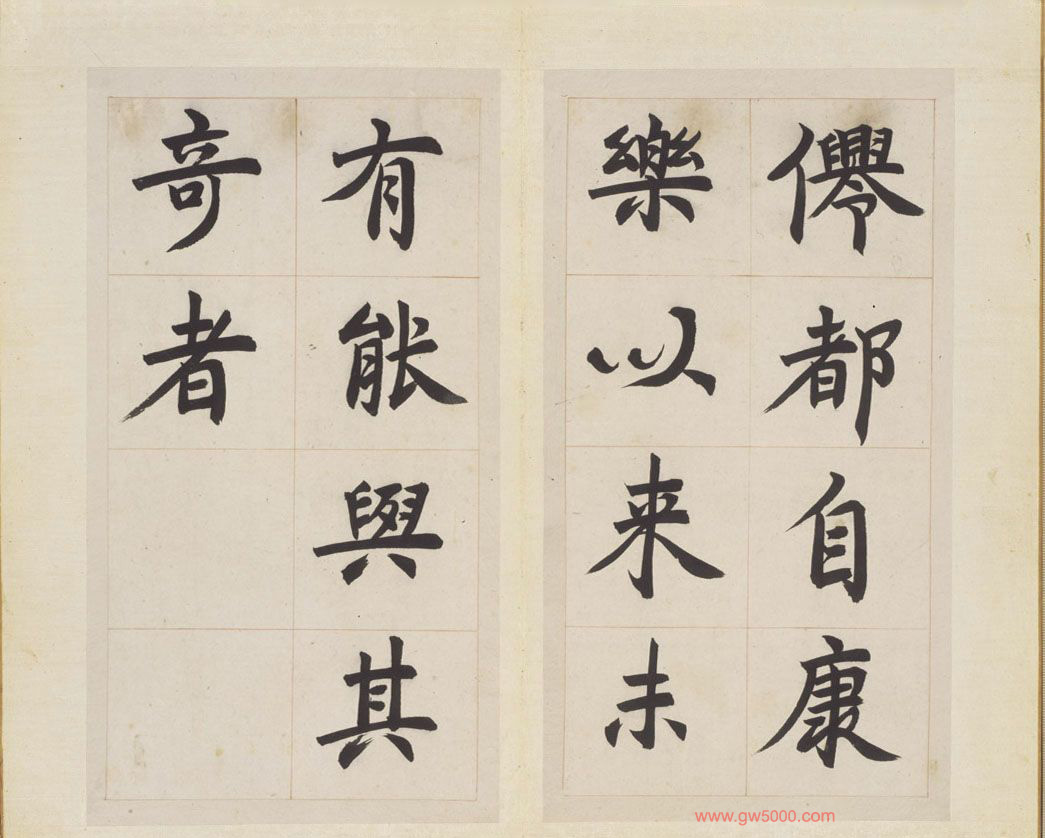 僊都自康
樂以来未
有能與其
奇者
www.gw5000.com